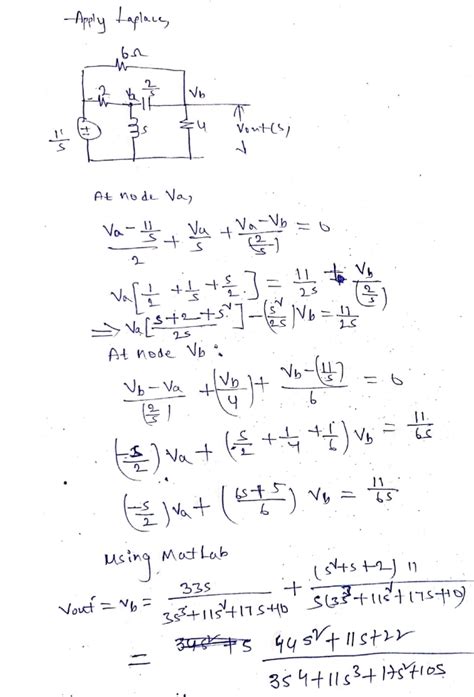 Apply Laplace,
6Ω
2 Va 2/s Vb
11/s ± s 4 Vout(s)
At node Va,
(Va - 11/s)/2 + Va/s + (Va-Vb)/(2/s) = 0
Va[1/2 + 1/s + s/2] = 11/2s + Vb/(2/s)
⇒ Va[(s+2+s²)/2s] - (s²/2s)Vb = 11/2s
At node Vb :
(Vb-Va)/(2/s) + (Vb/4) + (Vb-(11/s))/6 = 0
(-s/2)Va + (s/2 + 1/4 + 1/6) Vb = 11/6s
(-s/2)Va + ((6s+5)/6) Vb = 11/6s
Using MatLab
Vout = Vb = 33s/(3s³+11s²+17s+10) + (s²+s+2)11/(s(3s³+11s²+17s+10))
= (44s²+11s+22)/(3s4+11s³+17s²+10s)